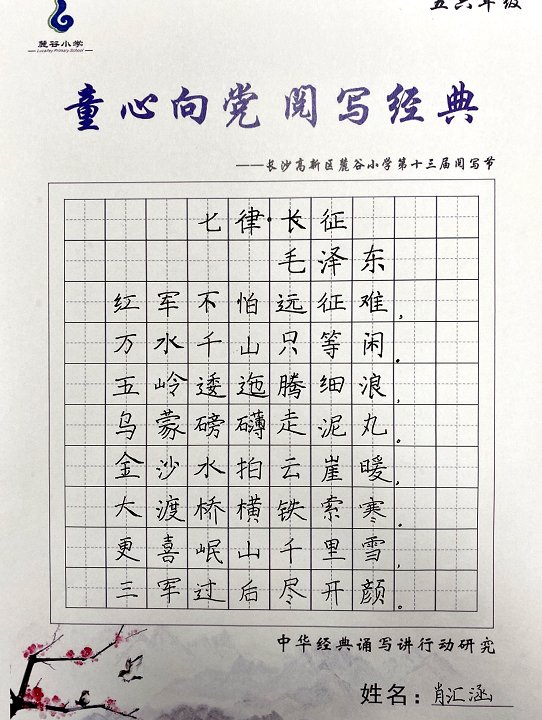 五六年级
麓谷小学
Lucaltey Primary School
童心向党 阅写经典
——长沙高新区麓谷小学第十三届阅写节
七律·长征
毛泽东
红军不怕远征难,
万水千山只等闲。
五岭逶迤腾细浪,
乌蒙磅礴走泥丸。
金沙水拍云崖暖,
大渡桥横铁索寒。
更喜岷山千里雪,
三军过后尽开颜。
中华经典诵写讲行动研究
姓名:肖汇涵